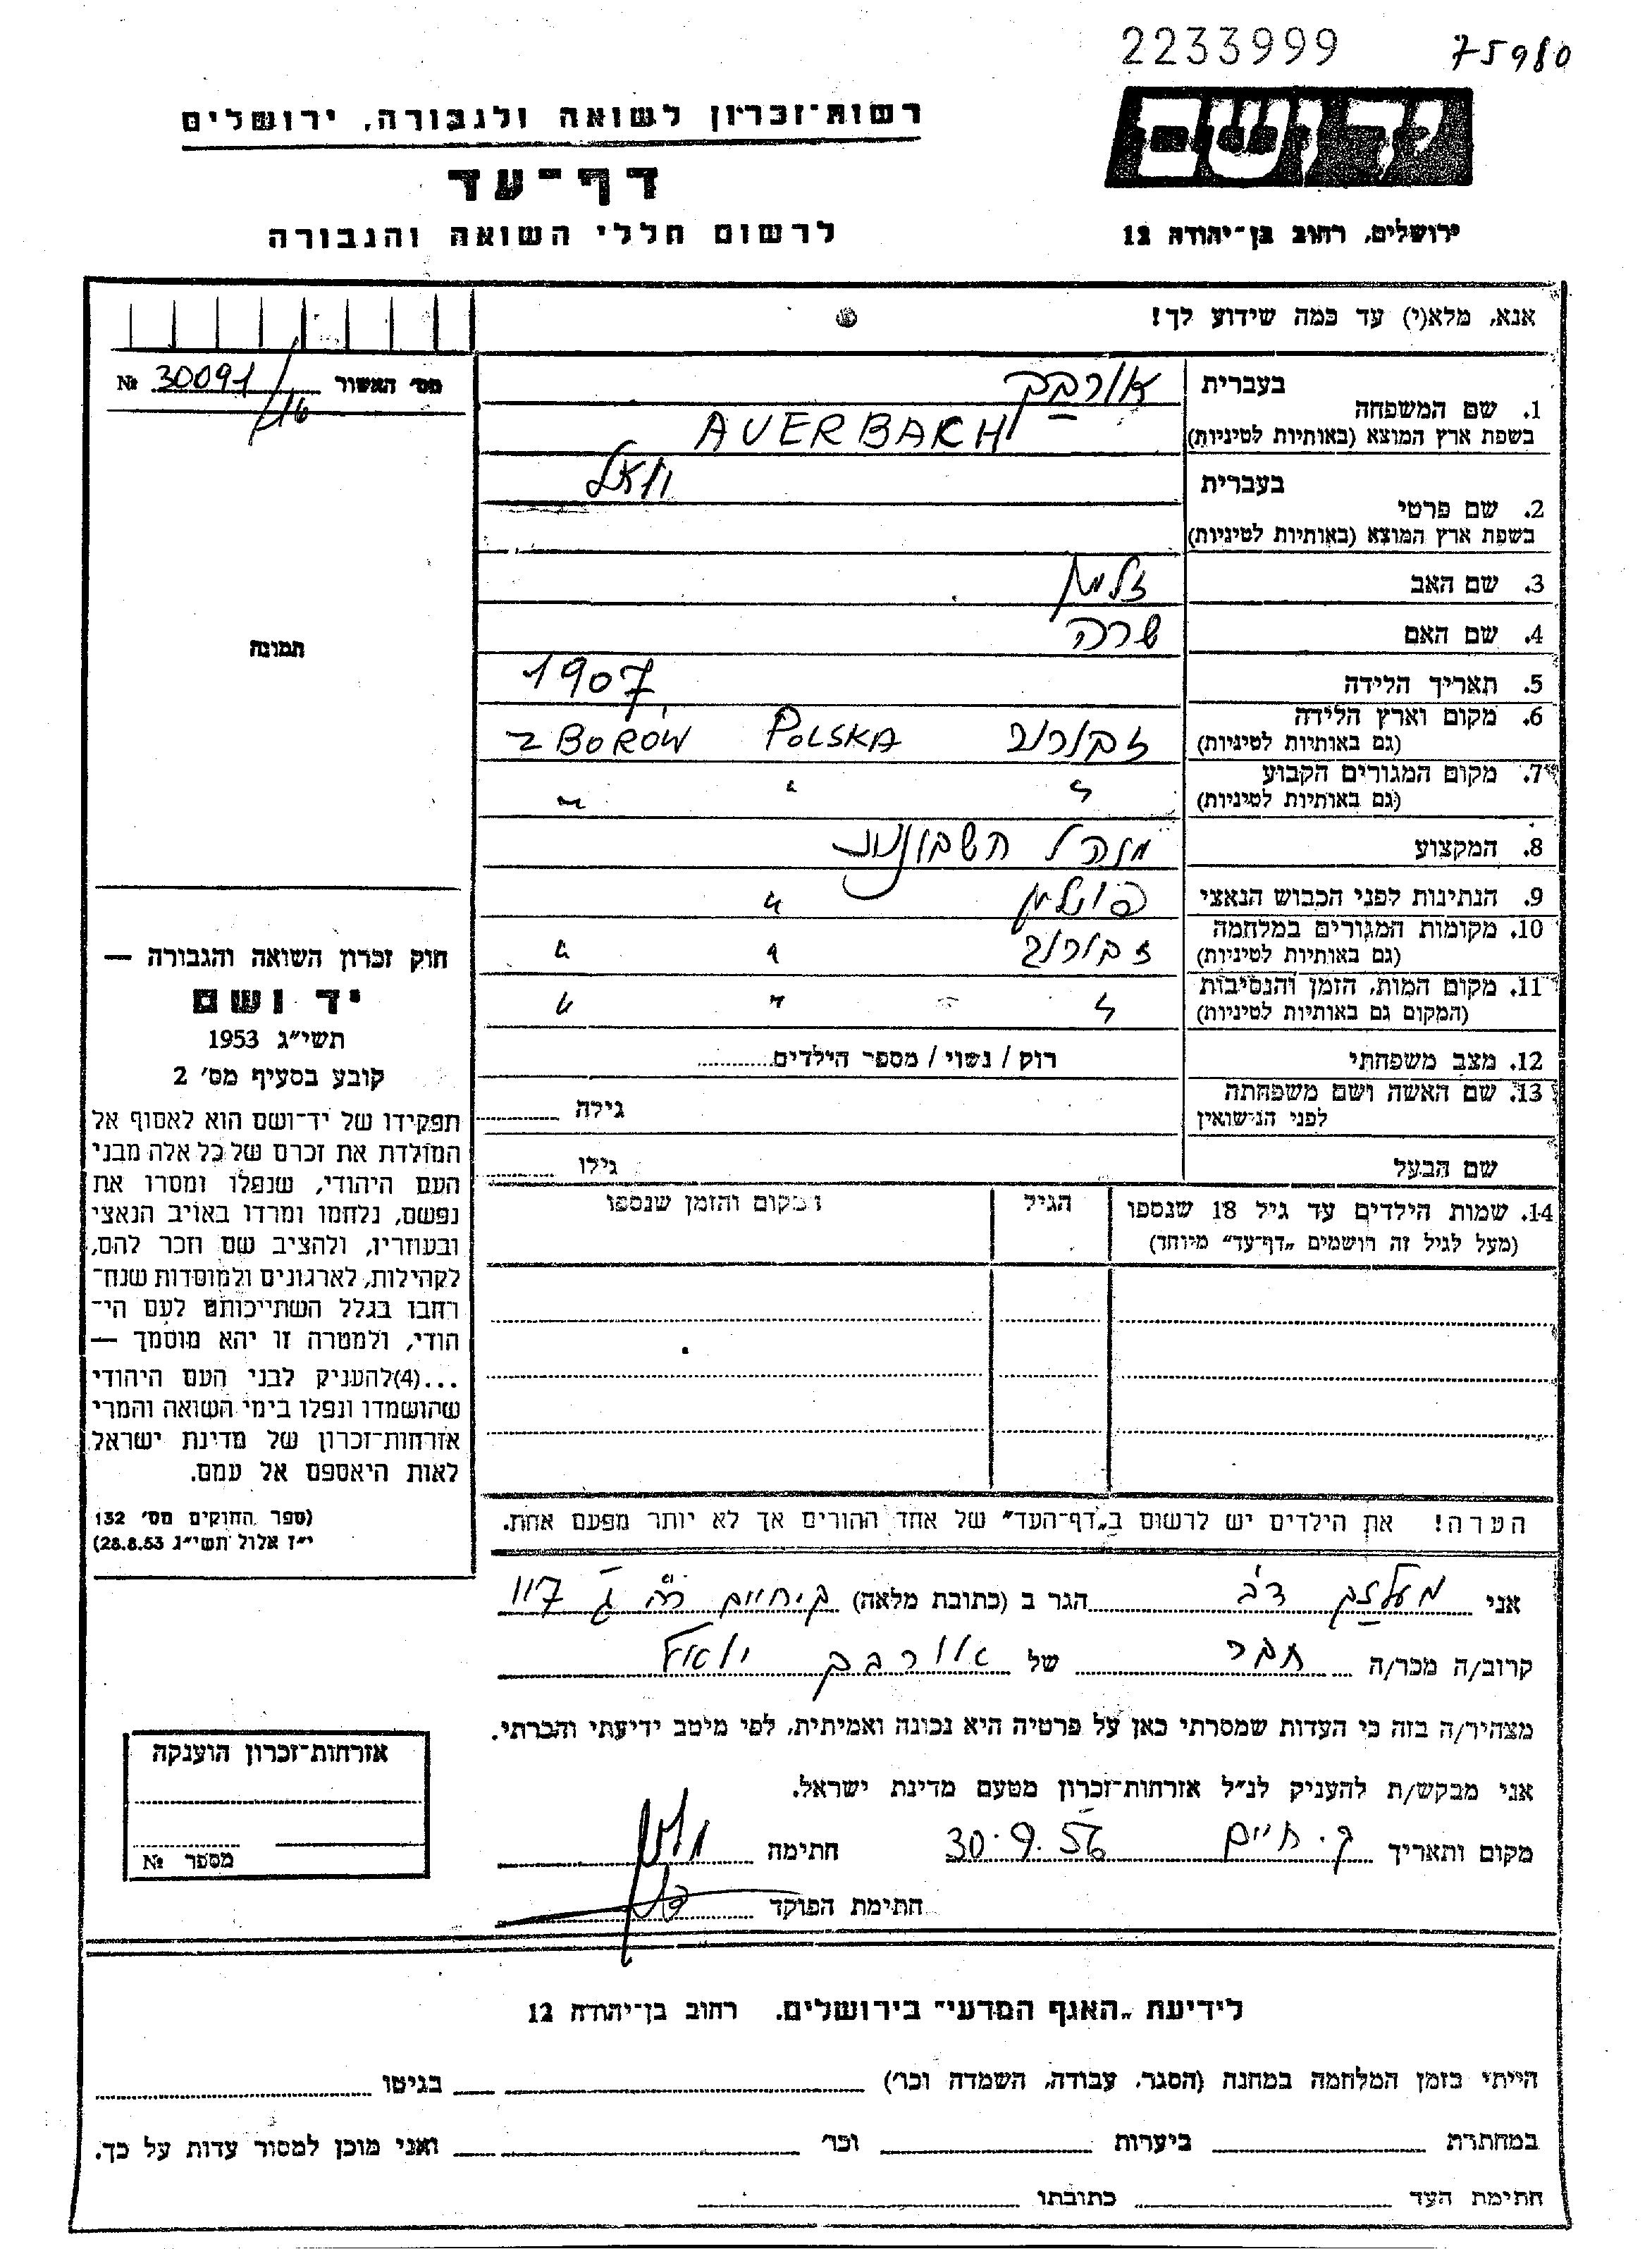 2233999 75980
יד ושם
רשות־זכרון לשואה ולגבורה, ירושלים
דף־עד
לרשום חללי השואה והגבורה
ירושלים, רחוב בן־יהודה 12
אנא, מלא(י) עד כמה שידוע לך!
מס׳ האשור 30091/16 №
תמונה
1. שם המשפחה
בעברית אורבך
בשפת ארץ המוצא (באותיות לטיניות) AUERBAKH
2. שם פרטי
בעברית יואל
בשפת ארץ המוצא (באותיות לטיניות)
3. שם האב זלמן
4. שם האם שרה
5. תאריך הלידה 1907
6. מקום וארץ הלידה
(גם באותיות לטיניות) זבורוב POLSKA ZBORÓW
7. מקום המגורים הקבוע
(גם באותיות לטיניות) " " "
8. המקצוע מנהל חשבונות
9. הנתינות לפני הכבוש הנאצי פולין "
10. מקומות המגורים במלחמה
(גם באותיות לטיניות) זבורוב " "
11. מקום המות, הזמן והנסיבות
(המקום גם באותיות לטיניות) " " "
12. מצב משפחתי רוק / נשוי / מספר הילדים
13. שם האשה ושם משפחתה
לפני הנישואין גילה
שם הבעל גילו
14. שמות הילדים עד גיל 18 שנספו הגיל המקום והזמן שנספו
(מעל לגיל זה רושמים „דף־עד” מיוחד)
חוק זכרון השואה והגבורה —
יד ושם
תשי״ג 1953
קובע בסעיף מס׳ 2
תפקידו של יד־ושם הוא לאסוף אל
המולדת את זכרם של כל אלה מבני
העם היהודי, שנפלו ומסרו את
נפשם, נלחמו ומרדו באויב הנאצי
ובעוזריו, ולהציב שם וזכר להם,
לקהילות, לארגונים ולמוסדות שנח־
רחבו בגלל השתייכותם לעם הי־
הודי, ולמטרה זו יהא מוסמך —
...(4)להעניק לבני העם היהודי
שהושמדו ונפלו בימי השואה והמרי
אזרחות־זכרון של מדינת ישראל
לאות היאספם אל עמם.
(ספר החוקים מס׳ 132
י״ז אלול תשי״ג 28.8.53)
הערה! את הילדים יש לרשום ב„דף־העד” של אחד ההורים אך לא יותר מפעם אחת.
אני דב הגר ב (כתובת מלאה) ק. חיים
קרוב/ה מכר/ה חבר של אורבך יואל
מצהיר/ה בזה כי העדות שמסרתי כאן על פרטיה היא נכונה ואמיתית, לפי מיטב ידיעתי והכרתי.
אני מבקש/ת להעניק לנ״ל אזרחות־זכרון מטעם מדינת ישראל.
מקום ותאריך ק. חיים 30.9.56 חתימה
חתימת הפוקד
אזרחות־זכרון הוענקה
מספר №
לידיעת „האגף המדעי” בירושלים. רחוב בן־יהודה 12
הייתי בזמן המלחמה במחנה (הסגר, עבודה, השמדה וכו׳) בגיטו
במחתרת ביערות וכו׳ ואני מוכן למסור עדות על כך.
חתימת העד כתובתו